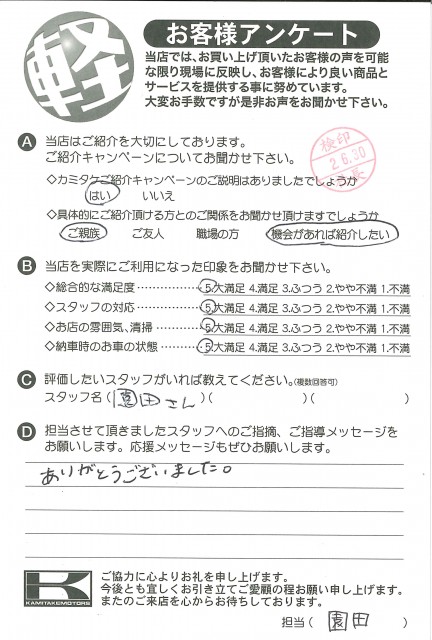 軽
お客様アンケート
当店では、お買い上げ頂いたお客様の声を可能
な限り現場に反映し、お客様により良い商品と
サービスを提供する事に努めています。
大変お手数ですが是非お声をお聞かせ下さい。
A 当店はご紹介を大切にしております。
ご紹介キャンペーンについてお聞かせ下さい。
検印
2.6.30
◇カミタケご紹介キャンペーンのご説明はありましたでしょうか
はい いいえ
◇具体的にご紹介頂ける方とのご関係をお聞かせ頂けますでしょうか
ご親族 ご友人 職場の方 機会があれば紹介したい
B 当店を実際にご利用になった印象をお聞かせ下さい。
◇総合的な満足度……………5.大満足 4.満足 3.ふつう 2.やや不満 1.不満
◇スタッフの対応……………5.大満足 4.満足 3.ふつう 2.やや不満 1.不満
◇お店の雰囲気、清掃………5.大満足 4.満足 3.ふつう 2.やや不満 1.不満
◇納車時のお車の状態………5.大満足 4.満足 3.ふつう 2.やや不満 1.不満
C 評価したいスタッフがいれば教えてください。(複数回答可)
スタッフ名(園田さん)( )( )
D 担当させて頂きましたスタッフへのご指摘、ご指導メッセージを
お願いします。応援メッセージもぜひお願いします。
ありがとうございました。
K
KAMITAKEMOTORS
ご協力に心よりお礼を申し上げます。
今後とも宜しくお引き立てご愛顧の程お願い申し上げます。
またのご来店を心からお待ちしております。
担当( 園田 )